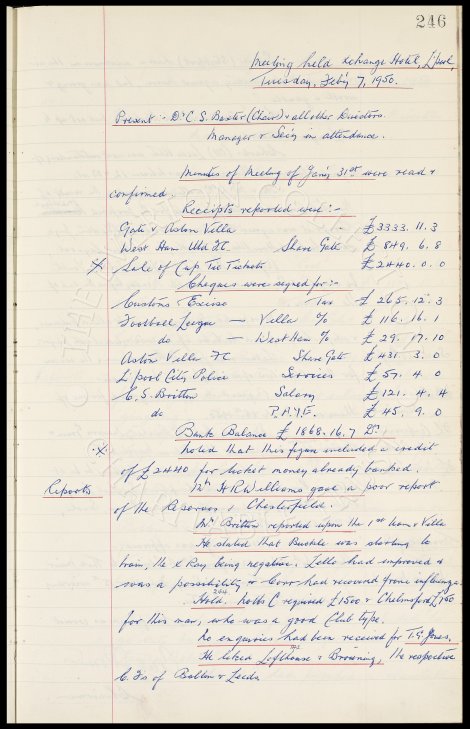 246
Meeting held Exchange Hotel, L'pool,
Tuesday, Feb'y 7, 1950.
Present :- Dr C. S. Baxter (Chair) & all other Directors.
Manager & Sec'y in attendance.
Minutes of Meeting of Jan'y 31st were read &
confirmed.
Receipts reported were :-
Gate v. Aston Villa - £3333. 11. 3
West Ham Utd FC. Share Gate £ 849. 6. 8
Sale of Cup Tie Tickets £2440. 0. 0
Cheques were signed for :-
Customs & Excise Tax £ 265. 12. 3
Football League — Villa % £ 116. 16. 1
do — West Ham % £ 29. 17. 10
Aston Villa FC Share Gate £431. 3. 0
L'pool City Police Services £ 57. 4. 0
C. S. Britton Salary £121. 4. 4
do P.A.Y.E. £ 45. 9. 0
Bank Balance £ 1868. 16. 7 Dr.
noted that this figure included a credit
of £2440 for ticket money already banked.
Reports
Mr W R Williams gave a poor report
of the Reserves v Chesterfield.
Mr Britton reported upon the 1st team v Villa
He stated that Buckle was starting to
train, the X Ray being negative. Lello had improved &
was a possibility & Corr had recovered from influenza.
Hold. Notts C required £1500 & Chelmsford £750
264
for this man, who was a good Club type.
No enquiries had been received for T.G. Jones.
He liked Lofthouse & Browning, the respective
C. Fs of Bolton & Leeds